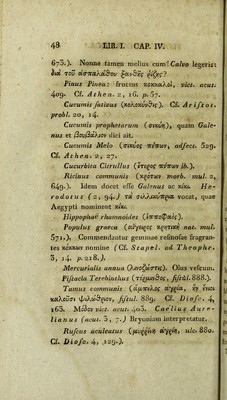 48 LIB. I. CAP. IV.
673.). Nonne tamen melius cum! Calvo legeris:
διὰ τοῦ ἀσπαλάθου ξανθῆς ῥίζης?
Pinus Pinea: fructus κοκκαλοὶ, vict. acut.
409. Cf. Athen. 2, 16. p. 57.
Cucumis sativus (κολοκύνθις). Cf. Aristot.
probl. 20, 14.
Cucumis prophetarum (σικύη), quam Gale-
nus et βουβάλιον dici ait.
Cucumis Melo (σικύος πέπων), adfect. 529.
Cf. Athen. 2, 27.
Cucurbita Citrullus (ἕτερος πέπων ib.).
Ricinus communis (κρότων morb. mul. 2,
649.). Idem docet esse Galenus ac κίκι. He-
rodotus (2, 94.) τὰ σιλλικύπρια vocat, quae
Aegypti nominent κίκι.
Hippophaë rhamnoides (ἱπποφαές).
Populus graeca (αἴγειρος κρητικὴ nat. mul.
571.). Commendantur gemmae resinosae fragran-
tes κόκκων nomine (Cf. Stapel. ad Theophr.
3, 14. p. 218.).
Mercurialis annua (λινοζώστις). Olus vescum.
Pistacia Terebinthus (τέρμινθος, fistul. 888.).
Tamus communis (ἄμπελος ἀγρία, ἣν ἔνιοι
καλέουσι ψίλωθρον, fistul. 889. Cf. Diosc. 4,
183. Μόθος vict. acut. 403. Caelius Aure-
lianus (acut. 3, 7.) Bryoniam interpretatur.
Ruscus aculeatus (μυῤῥίνη ἀγρία, ulc. 880.
Cf. Diosc. 4, 129.).